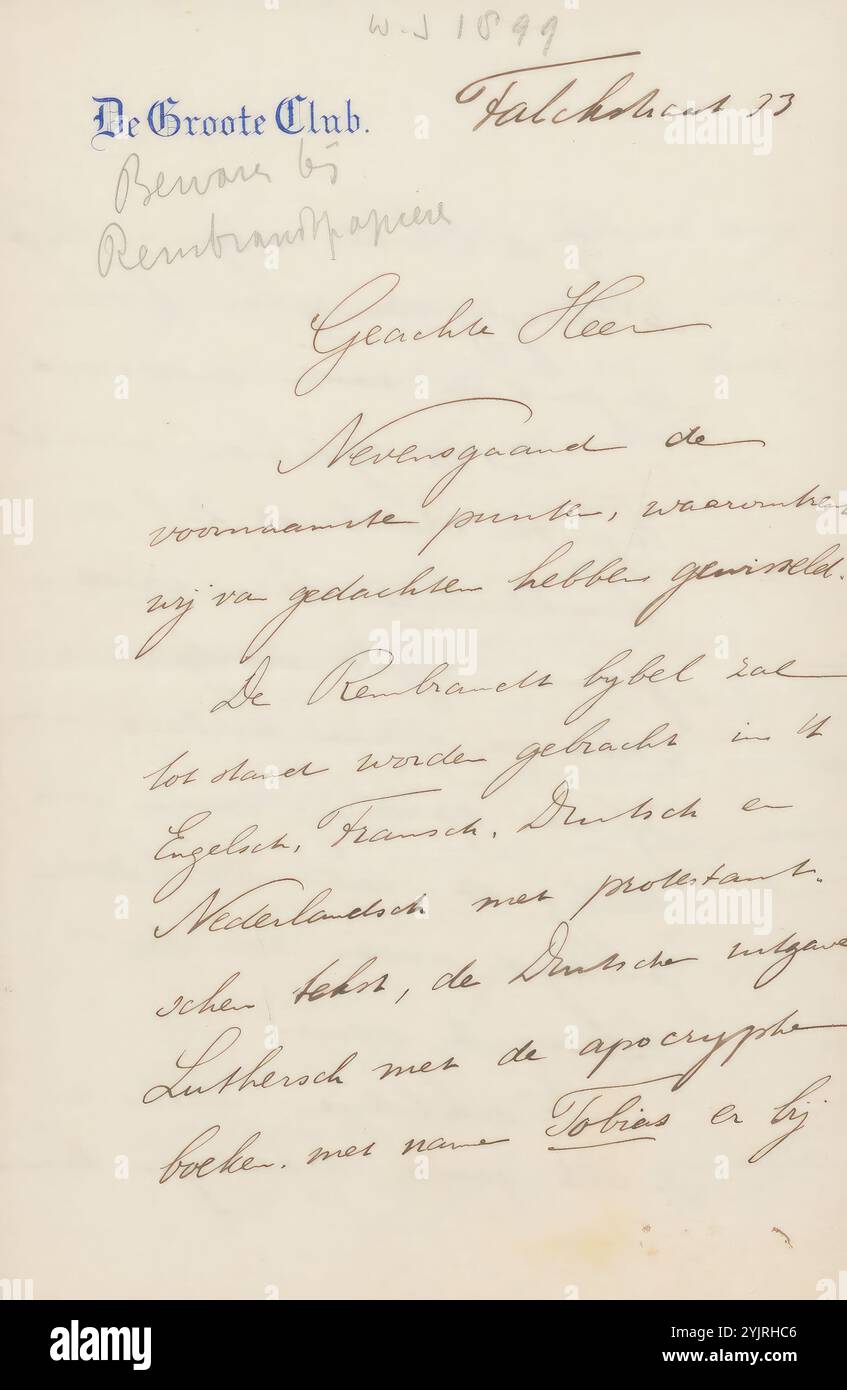 W.J 1899
De Groote Club.
Falckstraat 33
Bewaren bij
Rembrandtpapieren
Geachte Heer
Nevensgaand de
voornaamste punten, waaromtrent
wij van gedachten hebben gewisseld.
De Rembrandt bybel zal
tot stand worden gebracht in 't
Engelsch, Fransch, Duitsch en
Nederlandsch met protestant-
schen tekst, de Duitsche uitgave
Luthersch met de apocryphe
boeken. met name Tobias er bij
alamy
Image ID: 2YJRHC6
www.alamy.com